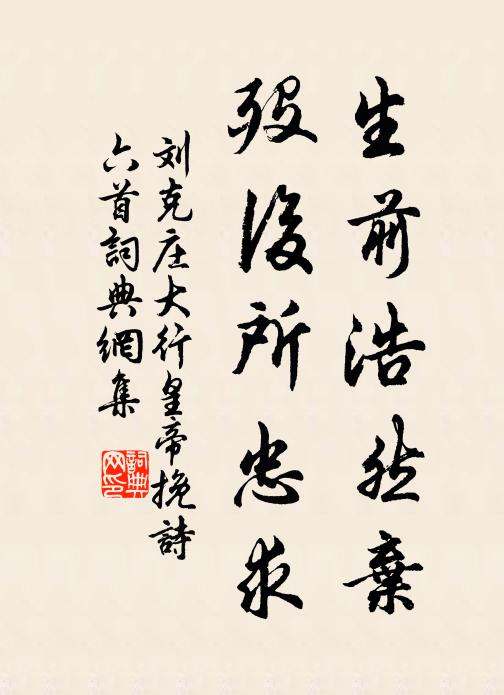 生前浩然棄
歿後所忠求
刘克庄大行皇帝挽詩
六首詞典網集
詞典网印